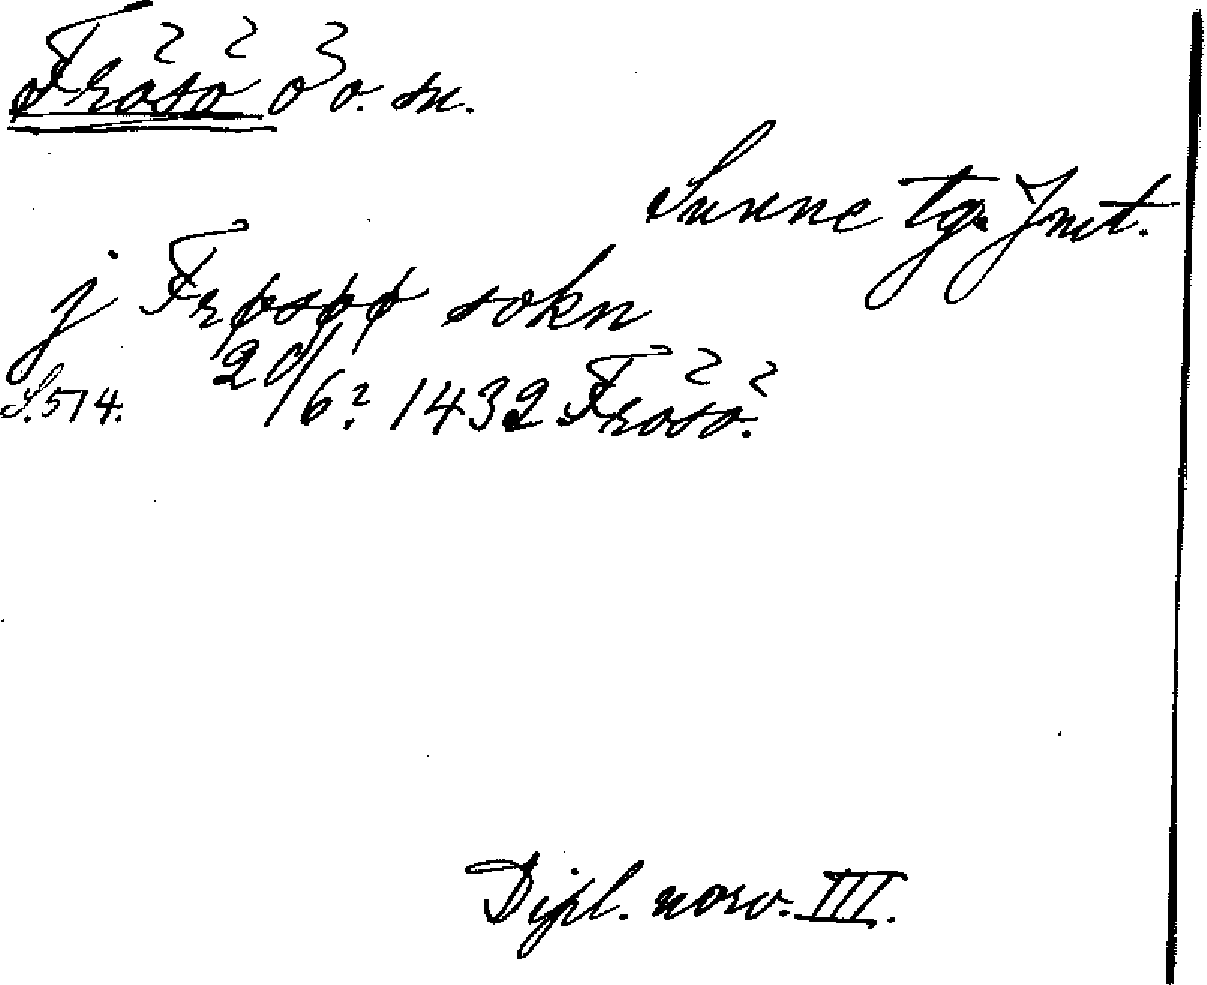 Frösö ö o. sn.
Sunne tg. Jmt.
j Frøsøø sokn
S. 574. 20/6? 1432 Frösö.
Dipl. norv. III.